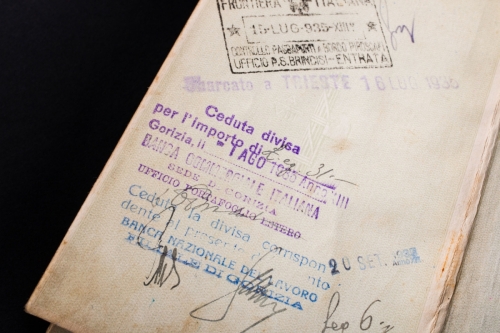 FRONTIERA ITALIANA
★ 15·LUG·935·XIII ★
CONTROLLO PASSAPORTI A BORDO PIROSCAFI
UFFICIO P.S. BRINDISI - ENTRATA
Sbarcato a TRIESTE 16 LUG 1935
Ceduta divisa
per l'importo di Leg. 31.-
Gorizia, li - 1 AGO 1935 Anno XIII
BANCA COMMERCIALE ITALIANA
SEDE DI GORIZIA
UFFICIO PORTAFOGLIO ESTERO
Ceduta la divisa corrispon
dente al presente
20 SET. 1935
BANCA NAZIONALE DEL LAVORO
FILIALE DI GORIZIA